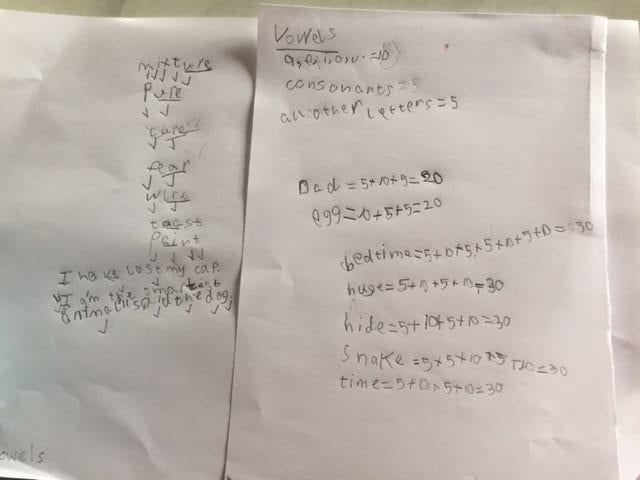 mixture
Pure
care
fear
wire
toast
Paint
I have lost my cap.
said the dog.
owels
Vowels
a, e, i, o, u. =10
consonants=5
all other Letters=5
Dad =5+10+5=20
egg=10+5+5=20
bedtime=5+10+5+5+10+5+10=50
huge=5+10+5+10=30
hide=5+10+5+10=30
Snake=5+5+10+5+10=30
time=5+10+5+10=30